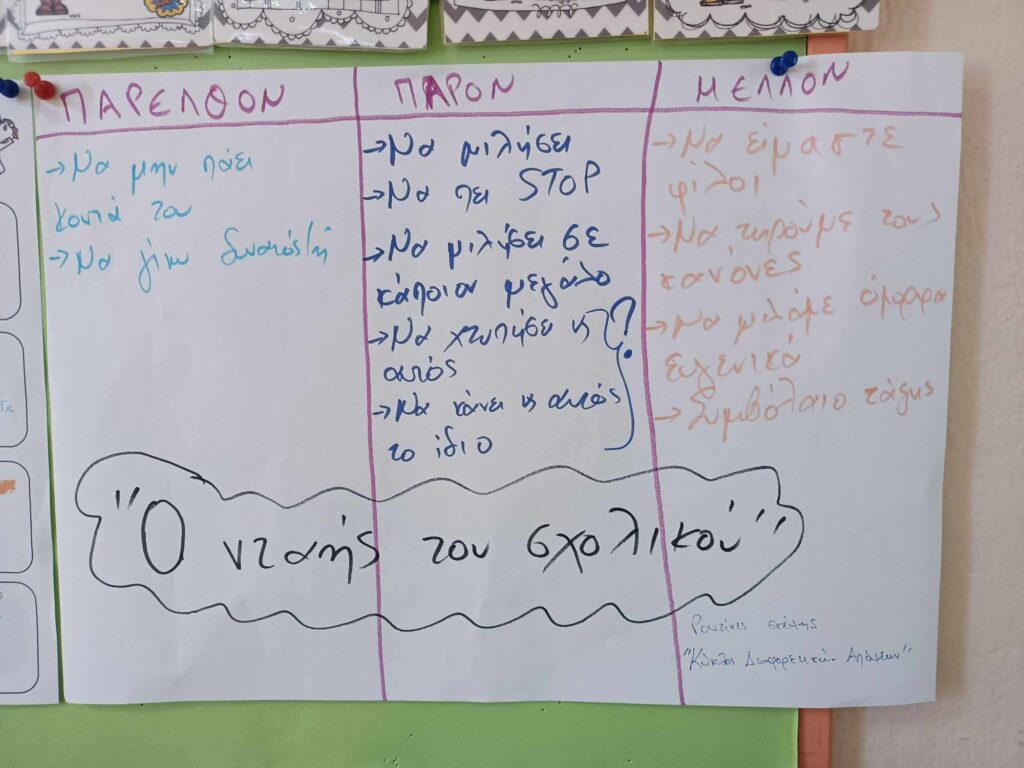 ΠΑΡΕΛΘΟΝ
→Να μην πάει
κοντά του
→Να γίνω δυνατός/ή
ΠΑΡΟΝ
→Να μιλήσει
→Να πει STOP
→Να μιλήσει σε
κάποιον μεγάλο
→Να χτυπήσει κι
αυτός
→Να κάνει κι αυτός
το ίδιο
?
ΜΕΛΛΟΝ
→Να είμαστε
φίλοι
→Να τηρούμε τους
κανόνες
→Να μιλάμε όμορφα
ευγενικά
→Συμβόλαιο τάξης
"Ο νταής του σχολικού"
Ρουτίνες σκέψης
"Κύκλος Διαφορετικών Απόψεων"